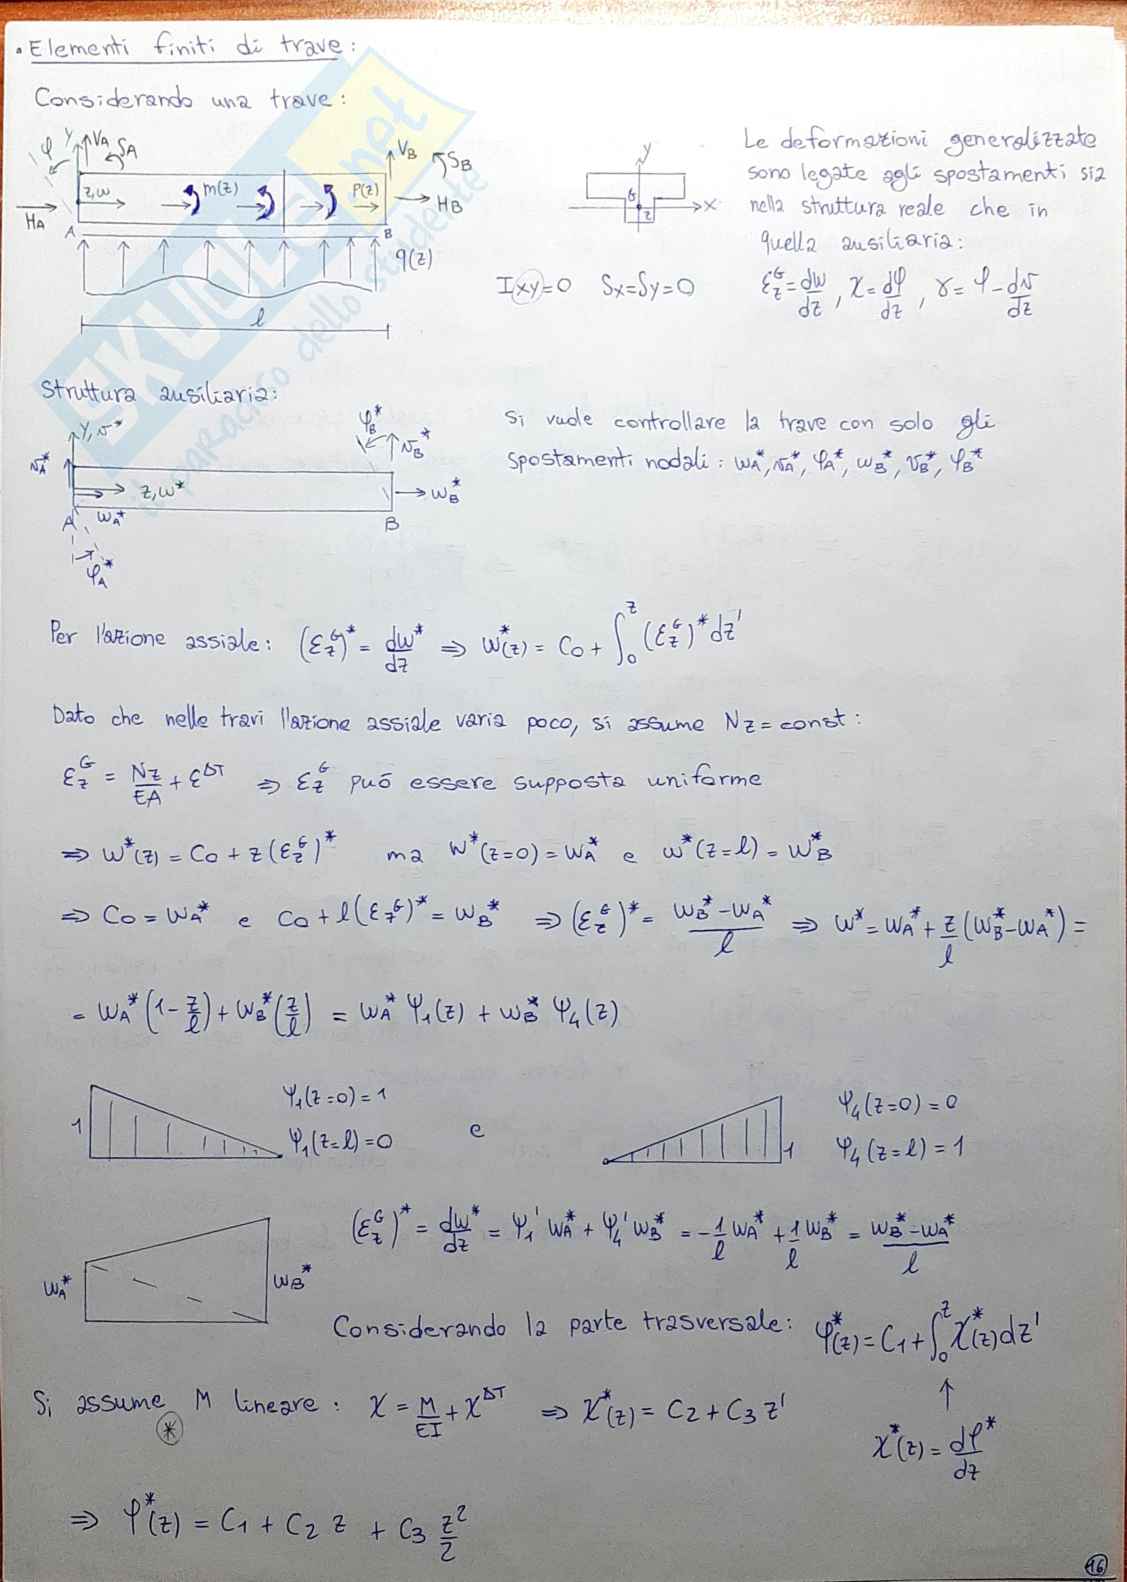 • Elementi finiti di trave:
Considerando una trave:
Le deformazioni generalizzate
sono legate agli spostamenti sia
nella struttura reale che in
quella ausiliaria:
φ Y VA SA
z,w m(z) P(z)
VB SB
HA HB
A B
q(z)
l
y
G
x
z
Ixy=0 Sx=Sy=0
ε_z^G = dw/dz , χ = dφ/dz , γ = φ - dv/dz
Struttura ausiliaria:
Y,v* φB* vB*
vA* z,w* wB*
A wA* B
φA*
Si vuole controllare la trave con solo gli
spostamenti nodali: wA*, vA*, φA*, wB*, vB*, φB*
Per l'azione assiale: (ε_z^G)* = dw*/dz ⇒ w*(z) = C0 + ∫_0^z (ε_z^G)* dz'
Dato che nelle travi l'azione assiale varia poco, si assume Nz = const:
ε_z^G = Nz/EA + ε^ΔT ⇒ ε_z^G può essere supposta uniforme
⇒ w*(z) = C0 + z(ε_z^G)* ma w*(z=0) = wA* e w*(z=l) = wB*
⇒ C0 = wA* e C0 + l(ε_z^G)* = wB* ⇒ (ε_z^G)* = (wB* - wA*)/l ⇒ w* = wA* + z/l (wB* - wA*) =
= wA* (1 - z/l) + wB* (z/l) = wA* Ψ1(z) + wB* Ψ4(z)
1 Ψ1(z=0) = 1
Ψ1(z=l) = 0
e
1 Ψ4(z=0) = 0
Ψ4(z=l) = 1
wA* wB*
(ε_z^G)* = dw*/dz = Ψ1' wA* + Ψ4' wB* = -1/l wA* + 1/l wB* = (wB* - wA*)/l
Considerando la parte trasversale: φ*(z) = C1 + ∫_0^z χ*(z) dz'
↑
χ*(z) = dφ*/dz
Si assume M lineare: χ = M/EI + χ^ΔT ⇒ χ*(z) = C2 + C3 z'
*
⇒ φ*(z) = C1 + C2 z + C3 z²/2
16
SKUOLA.net
il paracro dello studente